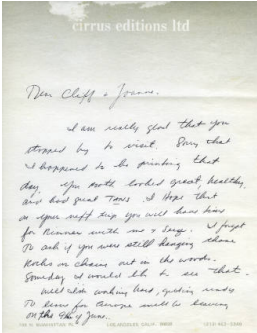 cirrus editions ltd
Dear Cliff & Joanne.
I am really glad that you
stopped by to visit. Sorry that
I happened to be printing that
day. You both looked great, healthy,
and had great Tans. I Hope that
on your next trip you will have time
for Dinner with me &
to ask if you were still hanging those
Rocks on chains out in the woods.
Someday I would like to see that.
Well I'm working hard, getting ready
to leave for Europe will be leaving
on the 9th of June.